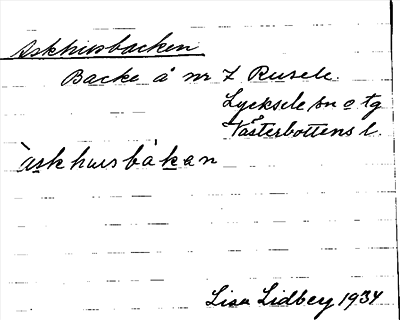 Askhusbacken
Backe å nr 7 Rusele.
Lycksele sn o tg
Västerbottens l.
`askhusbakan
Lisa Lidberg 1934